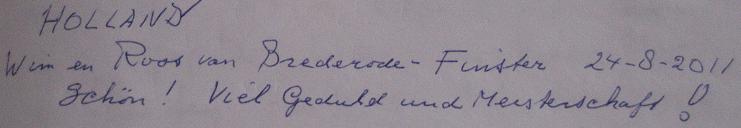 HOLLAND
Wim en Roos van Brederode - Finster 24-8-2011
Schön! Viel Geduld und Meisterschaft!